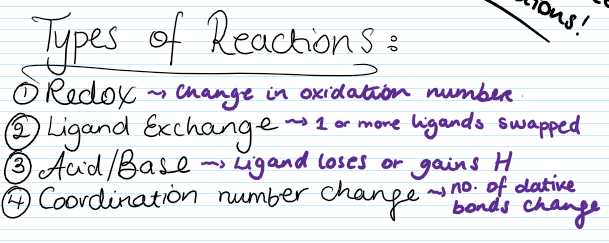 ions!
Types of Reactions:
① Redox → Change in oxidation number.
② Ligand Exchange → 1 or more ligands swapped
③ Acid/Base → Ligand loses or gains H
④ Coordination number change → no. of dative
bonds change